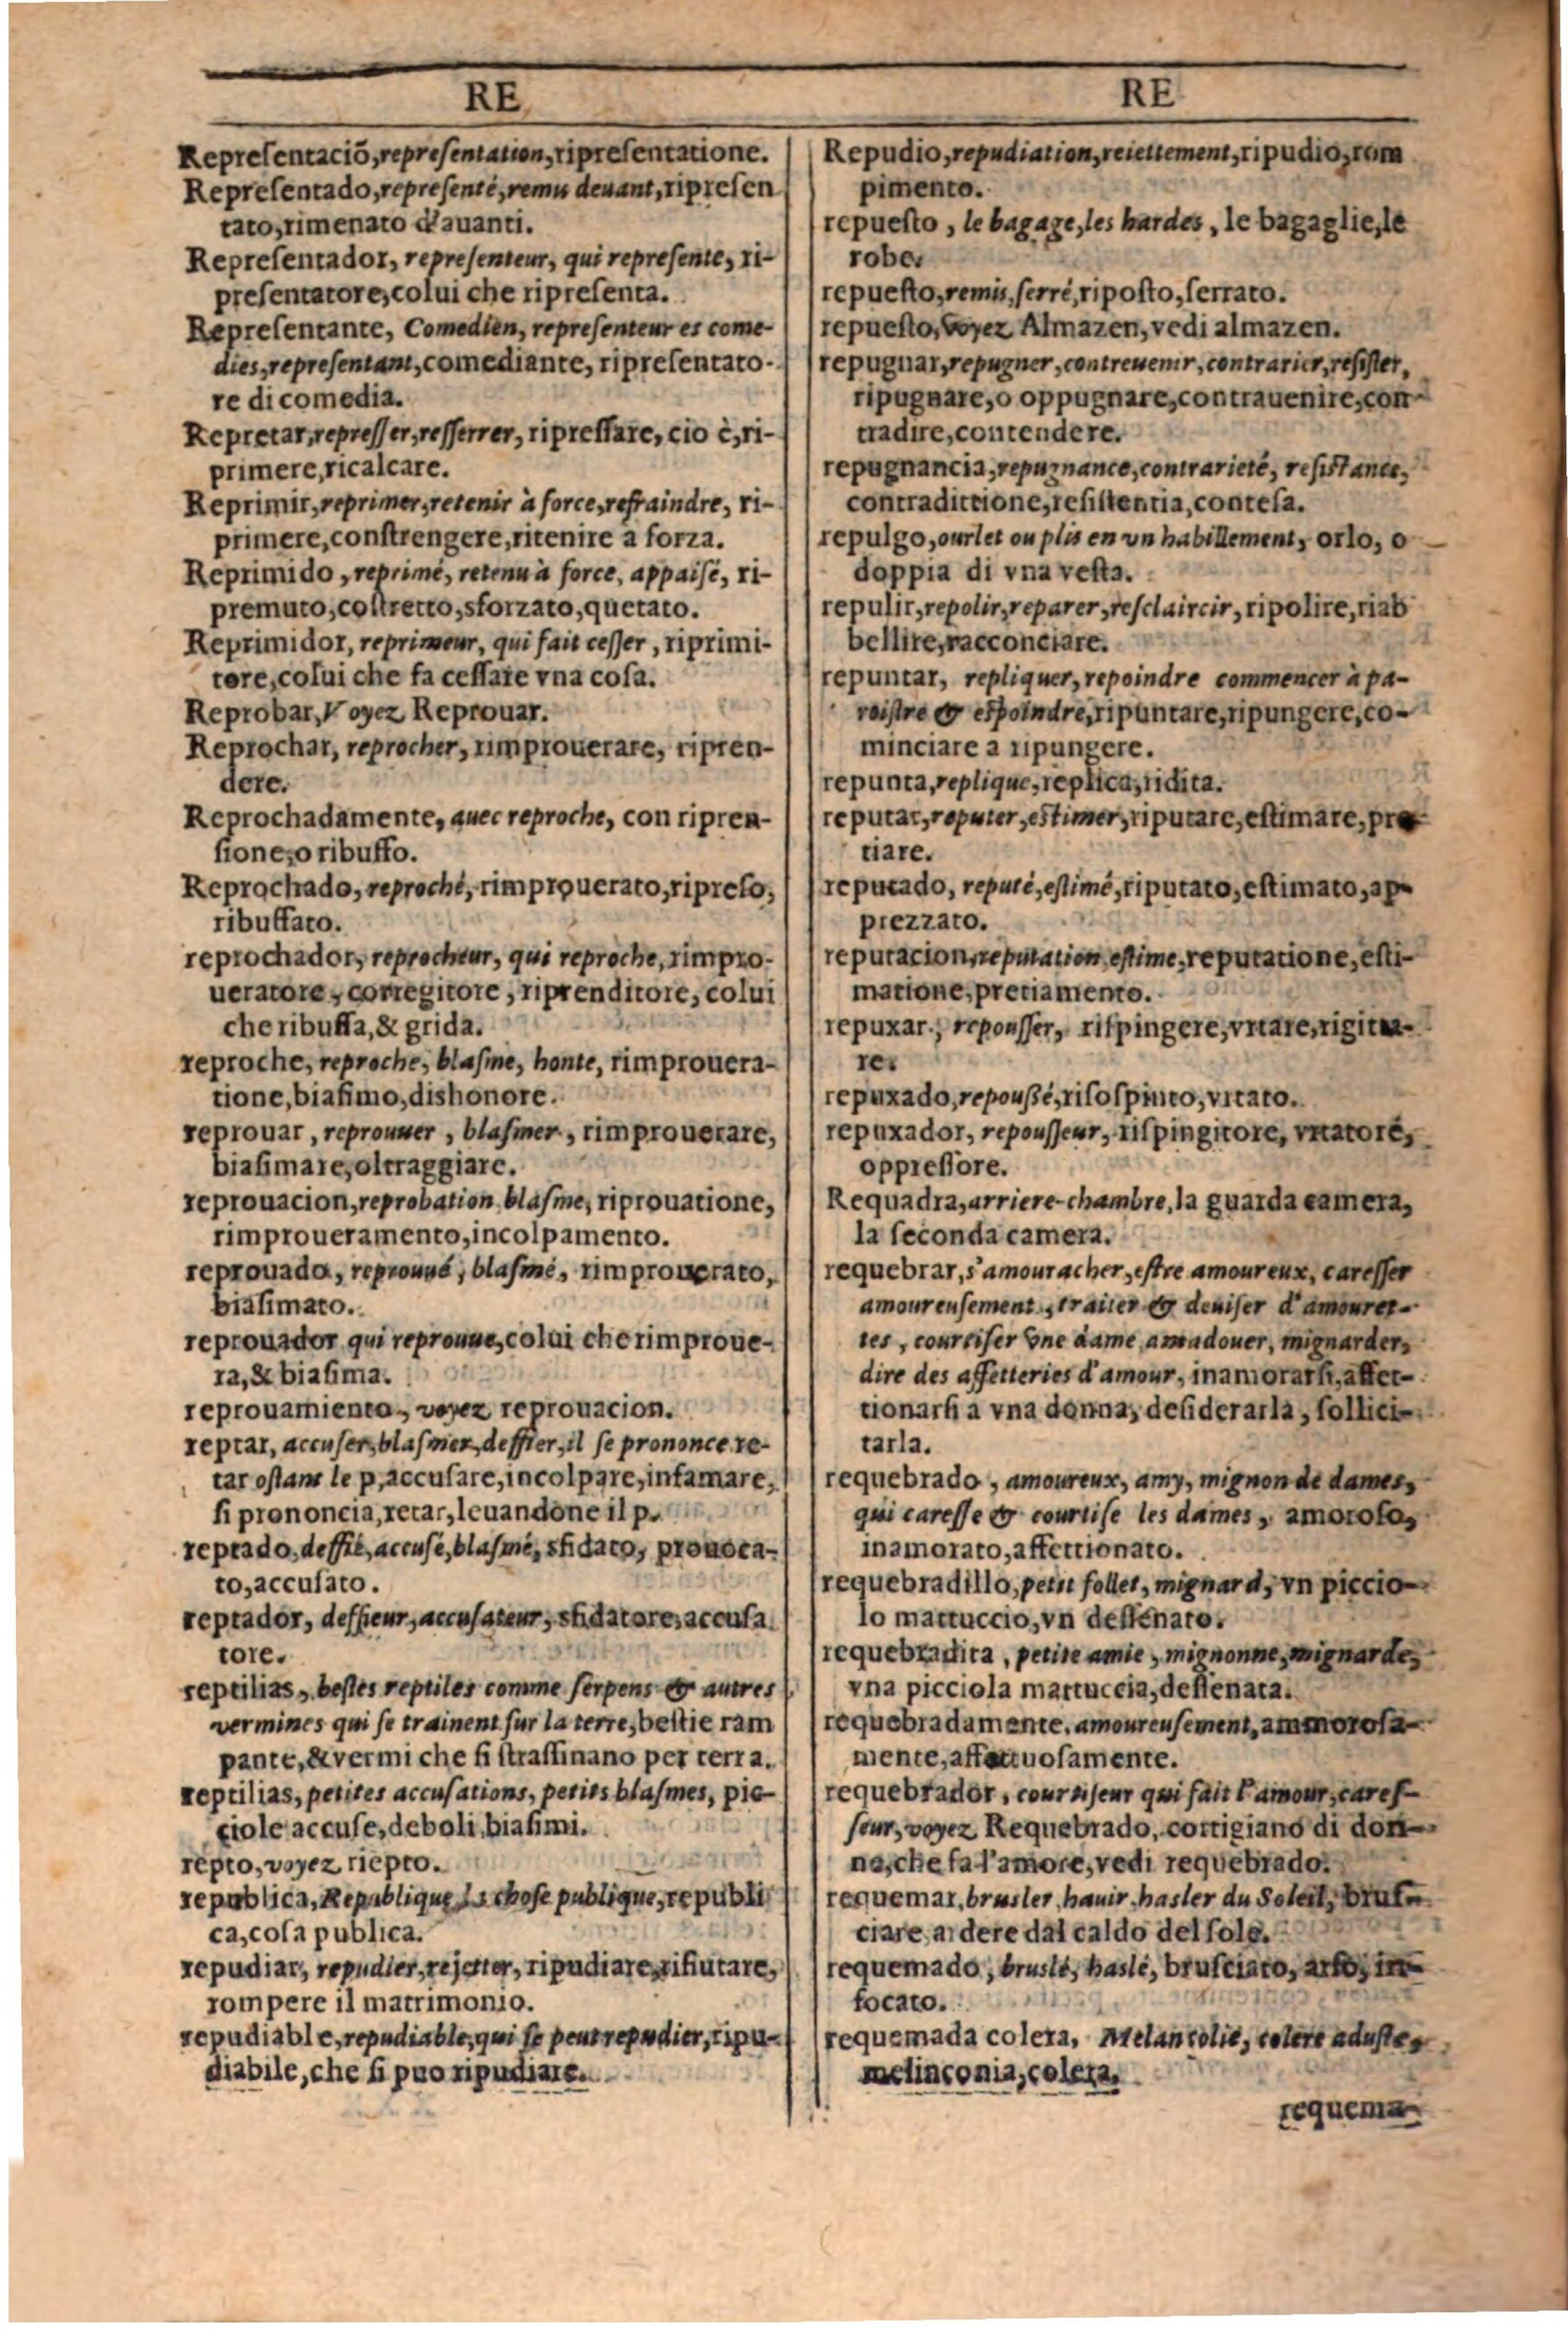 RE
Repreſentaciō, repreſentation, ripreſentatione.
Repreſentado, repreſenté, remis deuant, ripreſen
tato, rimenato d'auanti.
Repreſentador, repreſenteur, qui repreſente, ri-
preſentatore, colui che ripreſenta.
Repreſentante, Comedien, repreſenteur es come-
dies, repreſentant, comediante, ripreſentato-
re di comedia.
Repretar, repreſſer, reſſerrer, ripreſſare, cio è, ri-
primere, ricalcare.
Reprimir, reprimer, retenir à force, refraindre, ri-
primere, conſtrengere, ritenire a forza.
Reprimido, reprimé, retenu à force, appaiſé, ri-
premuto, coſtretto, sforzato, quetato.
Reprimidor, reprimeur, qui fait ceſſer, riprimi-
tore, colui che fa ceſſare vna coſa.
Reprobar, Voyez Reprouar.
Reprochar, reprocher, rimprouerare, ripren-
dere.
Reprochadamente, auec reproche, con ripren-
ſione, o ribuffo.
Reprochado, reproché, rimprouerato, ripreſo,
ribuffato.
reprochador, reprocheur, qui reproche, rimpro-
ueratore, corregitore, riprenditore, colui
che ribuffa, & grida.
reproche, reproche, blaſme, honte, rimprouera-
tione, biaſimo, dishonore.
reprouar, reprouuer, blaſmer, rimprouerare,
biaſimare, oltraggiare.
reprouacion, reprobation, blaſme, riprouatione,
rimproueramento, incolpamento.
reprouado, reprouué, blaſmé, rimprouerato,
biaſimato.
reprouador qui reprouue, colui che rimproue-
ra, & biaſima.
reprouamiento, voyez reprouacion.
reptar, accuſer, blaſmer, deffier, il ſe prononce re-
tar oſtant le p, accuſare, incolpare, infamare,
ſi prononcia, retar, leuandone il p.
reptado, deffié, accuſé, blaſmé, sfidato, prouoca-
to, accuſato.
reptador, deffieur, accuſateur, sfidatore, accuſa
tore.
reptilias, beſtes reptiles comme ſerpens & autres
vermines qui ſe trainent ſur la terre, beſtie ram
pante, & vermi che ſi ſtraſſinano per terra.
reptilias, petites accuſations, petits blaſmes, pic-
ciole accuſe, deboli biaſimi.
repto, voyez riepto.
republica, Republique, la choſe publique, republi
ca, coſa publica.
repudiar, repudier, rejetter, ripudiare, rifiutare,
rompere il matrimonio.
repudiable, repudiable, qui ſe peut repudier, ripu-
diabile, che ſi puo ripudiare.
RE
Repudio, repudiation, reiettement, ripudio, rom
pimento.
repueſto, le bagage, les hardes, le bagaglie, le
robe.
repueſto, remis, ſerré, ripoſto, ſerrato.
repueſto, Voyez Almazen, vedi almazen.
repugnar, repugner, contreuenir, contrarier, reſiſter,
ripugnare, o oppugnare, contrauenire, con-
tradire, contendere.
repugnancia, repugnance, contrarieté, reſiſtance,
contradittione, reſiſtentia, conteſa.
repulgo, ourlet ou plis en vn habillement, orlo, o
doppia di vna veſta.
repulir, repolir, reparer, reſclaircir, ripolire, riab
bellire, racconciare.
repuntar, repliquer, repoindre commencer à pa-
roiſtre & eſpoindre, ripuntare, ripungere, co-
minciare a ripungere.
repunta, replique, replica, ridita.
reputar, reputer, eſtimer, riputare, eſtimare, pre
tiare.
reputado, reputé, eſtimé, riputato, eſtimato, ap-
prezzato.
reputacion, reputation, eſtime, reputatione, eſti-
matione, pretiamento.
repuxar, repouſſer, riſpingere, vrtare, rigitta-
re.
repuxado, repouſſé, riſoſpinto, vrtato.
repuxador, repouſſeur, riſpingitore, vrtatore,
oppreſſore.
Requadra, arriere-chambre, la guarda camera,
la ſeconda camera.
requebrar, s'amouracher, eſtre amoureux, careſſer
amoureuſement, traiter & deuiſer d'amouret-
tes, courtiſer vne dame, amadouer, mignarder,
dire des affetteries d'amour, inamorarſi, affet-
tionarſi a vna donna, deſiderarla, ſollici-
tarla.
requebrado, amoureux, amy, mignon de dames,
qui careſſe & courtiſe les dames, amoroſo,
inamorato, affettionato.
requebradillo, petit follet, mignard, vn piccio-
lo mattuccio, vn deſſenato.
requebradita, petite amie, mignonne, mignarde,
vna picciola mattuccia, deſſenata.
requebradamente, amoureuſement, ammoroſa-
mente, affettuoſamente.
requebrador, courtiſeur qui fait l'amour, careſ-
ſeur, voyez Requebrado, cortigiano di don-
ne, che fa l'amore, vedi requebrado.
requemar, brusler, hauir, hasler du Soleil, bruſ-
ciare ardere dal caldo del ſole.
requemado, bruslé, haslé, bruſciato, arſo, in-
focato.
requemada colera, Melancolie, colere aduſte,
melinconia, colera.
requema-